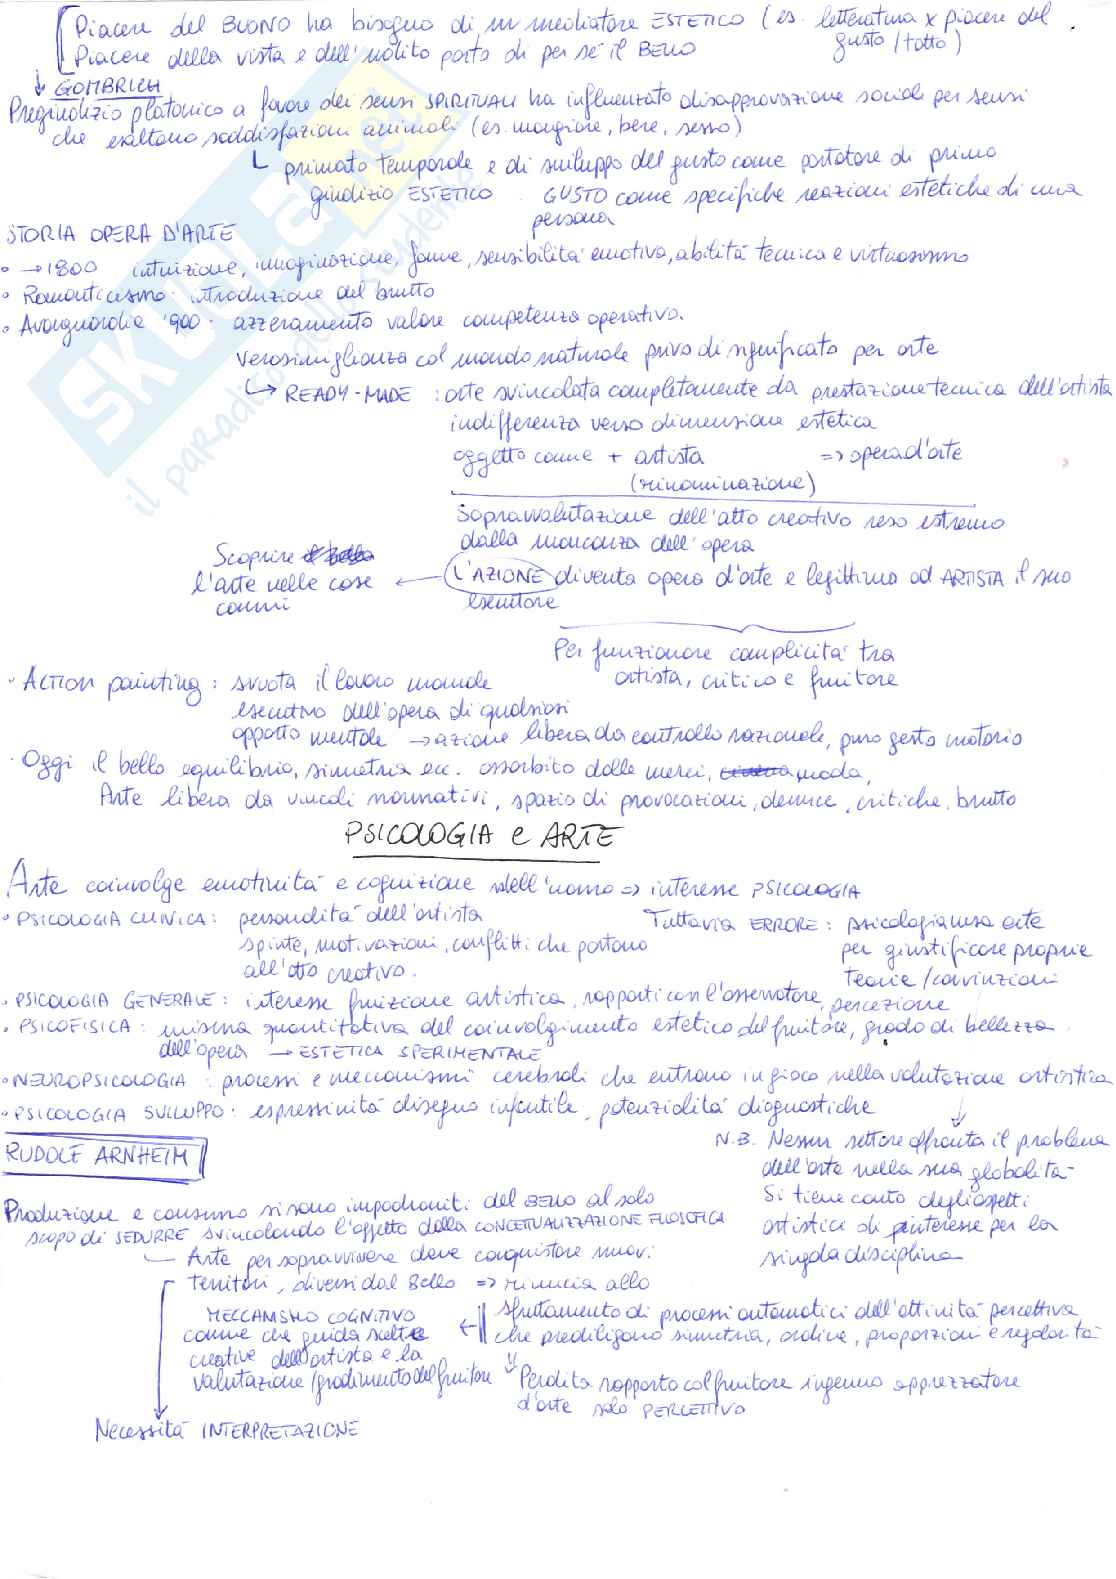 Piacere del BUONO ha bisogno di un mediatore ESTETICO (es. letteratura x piacere del gusto/tatto)
Piacere della vista e dell'udito porta di per sé il BELLO
↓ GOMBRICH
Pregiudizio platonico a favore dei sensi SPIRITUALI ha influenzato disapprovazione sociale per sensi
che esaltano soddisfazioni animali (es. mangiare, bere, sesso)
primato temporale e di sviluppo del gusto come portatore di primo
giudizio ESTETICO. GUSTO come specifiche reazioni estetiche di una
persona
STORIA OPERA D'ARTE
• →1800 intuizione, immaginazione, forme, sensibilità emotiva, abilità tecnica e virtuosismo
• Romanticismo: introduzione del brutto
• Avanguardia '900: azzeramento valore competenza operativa.
verosimiglianza col mondo naturale privo di significato per arte
↳ READY-MADE: arte svincolata completamente da prestazione tecnica dell'artista
indifferenza verso dimensione estetica
oggetto comune + artista => opera d'arte
(rinominazione)
Sopravvalutazione dell'atto creativo reso estremo
dalla mancanza dell'opera
Scoprire
l'arte nelle cose ← L'AZIONE diventa opera d'arte e legittima ad ARTISTA il suo
comuni esecutore
Per funzionare complicità tra
artista, critico e fruitore
• ACTION painting: svuota il lavoro manuale
esecutivo dell'opera di qualsiasi
apporto mentale → azione libera da controllo razionale, puro gesto motorio
• Oggi il bello equilibrio, simmetria ecc. assorbito dalle merci, moda,
Arte libera da vincoli normativi, spazio di provocazioni, denunce, critiche, brutto
PSICOLOGIA e ARTE
Arte coinvolge emotività e cognizione dell'uomo => interesse PSICOLOGIA
• PSICOLOGIA CLINICA: personalità dell'artista
spinte, motivazioni, conflitti che portano
all'atto creativo.
Tuttavia ERRORE: psicologia usa arte
per giustificare proprie
teorie/convinzioni
• PSICOLOGIA GENERALE: interesse fruizione artistica, rapporti con l'osservatore, percezione
• PSICOFISICA: misura quantitativa del coinvolgimento estetico del fruitore, grado di bellezza
dell'opera → ESTETICA SPERIMENTALE
• NEUROPSICOLOGIA: processi e meccanismi cerebrali che entrano in gioco nella valutazione artistica
• PSICOLOGIA SVILUPPO: espressività disegno infantile, potenzialità diagnostiche
N.B. Nessun settore affronta il problema
dell'arte nella sua globalità
Si tiene conto degli aspetti
artistici di interesse per la
singola disciplina
RUDOLF ARNHEIM
Produzione e consumo si sono impadroniti del BELLO al solo
scopo di SEDURRE svincolando l'oggetto dalla CONCETTUALIZZAZIONE FILOSOFICA
Arte per sopravvivere deve conquistare nuovi
territori, diversi dal Bello => rinuncia allo
sfruttamento di processi automatici dell'attività percettiva
che prediligono simmetria, ordine, proporzioni e regolarità
MECCANISMO COGNITIVO
comune che guida scelte
creative dell'artista e la
valutazione/gradimento del fruitore
Perdita rapporto col fruitore ingenuo apprezzatore
d'arte solo PERCETTIVO
Necessità INTERPRETAZIONE
SKUOLA.net
il paradiso dello studente